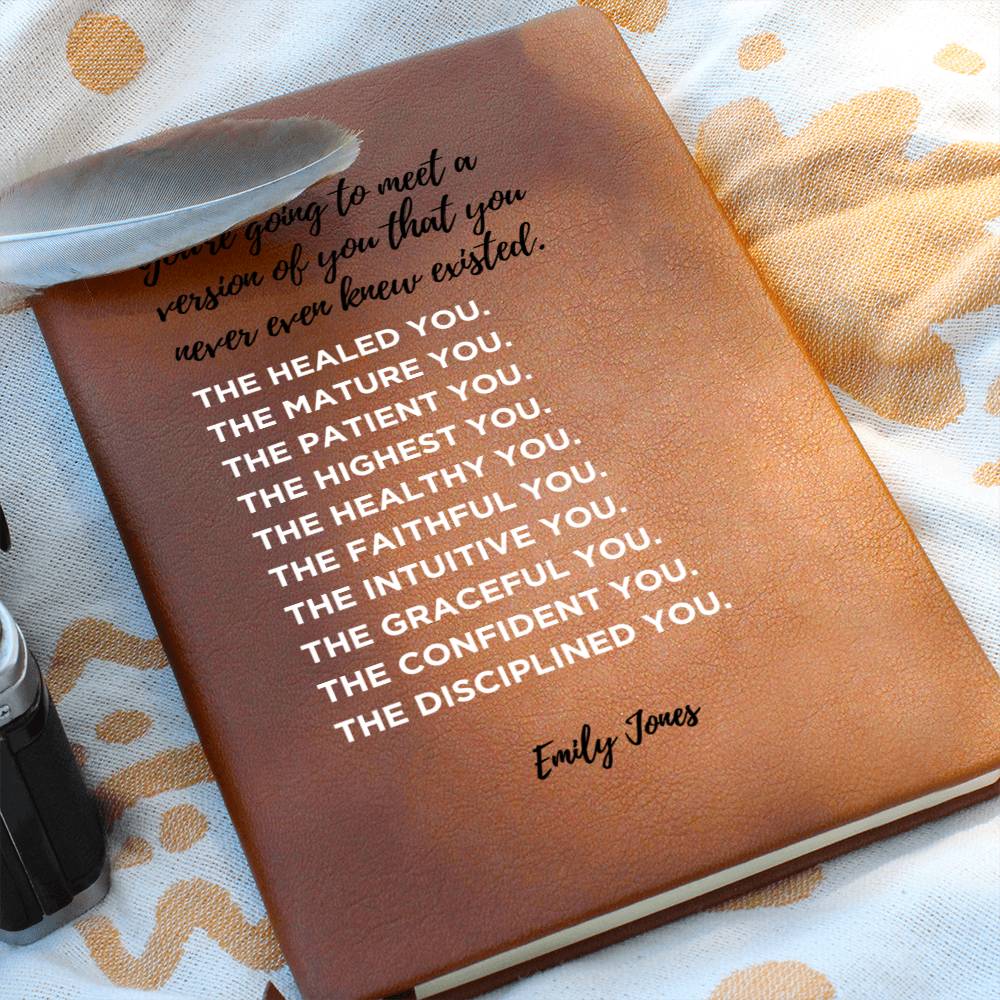 you're going to meet a
version of you that you
never even knew existed.
THE HEALED YOU.
THE MATURE YOU.
THE PATIENT YOU.
THE HIGHEST YOU.
THE HEALTHY YOU.
THE FAITHFUL YOU.
THE INTUITIVE YOU.
THE GRACEFUL YOU.
THE CONFIDENT YOU.
THE DISCIPLINED YOU.
Emily Jones